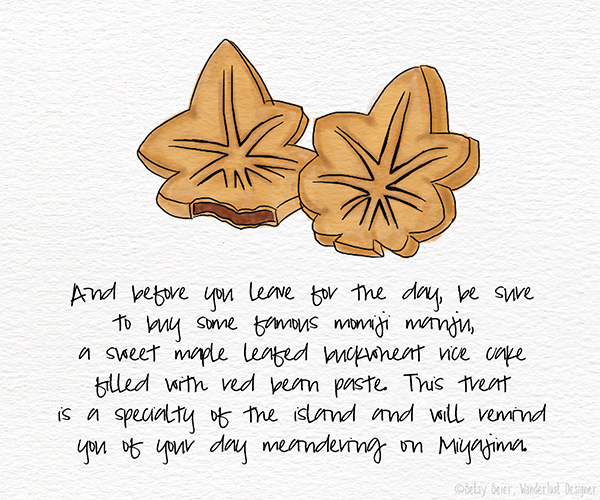 And before you leave for the day, be sure
to buy some famous momiji manju,
a sweet maple leafed buckwheat rice cake
filled with red bean paste. This treat
is a specialty of the island and will remind
you of your day meandering on Miyajima.
©Betsy Beier, Wanderlust Designer